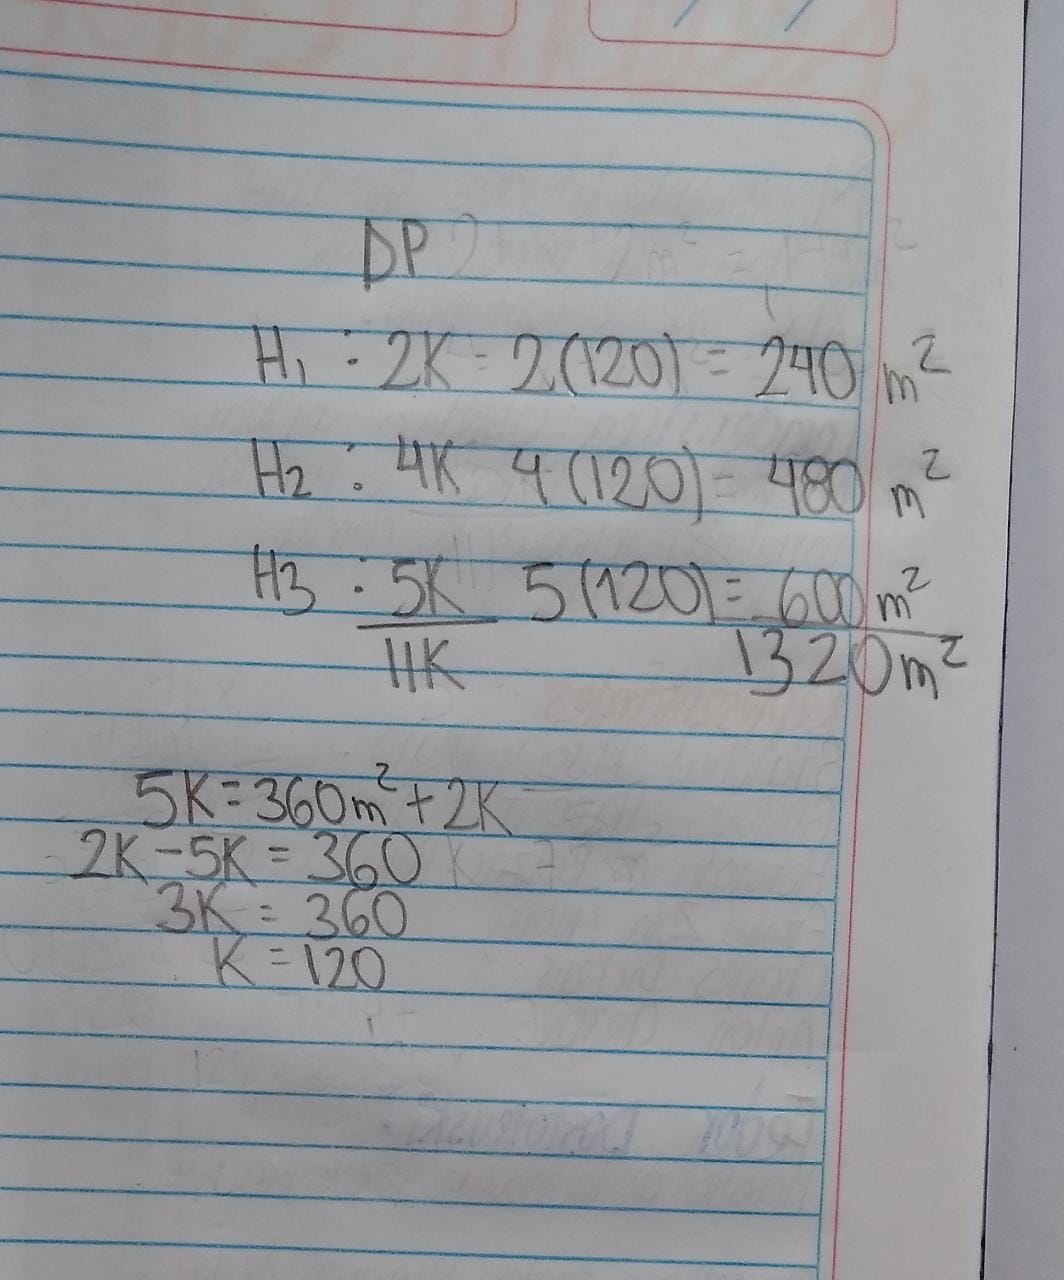 DP
H1 : 2K = 2(120) = 240 m²
H2 : 4K 4(120) = 480 m²
H3 : 5K 5(120) = 600 m²
11K 1320m²
5K = 360m² + 2K
2K - 5K = 360
3K = 360
K = 120